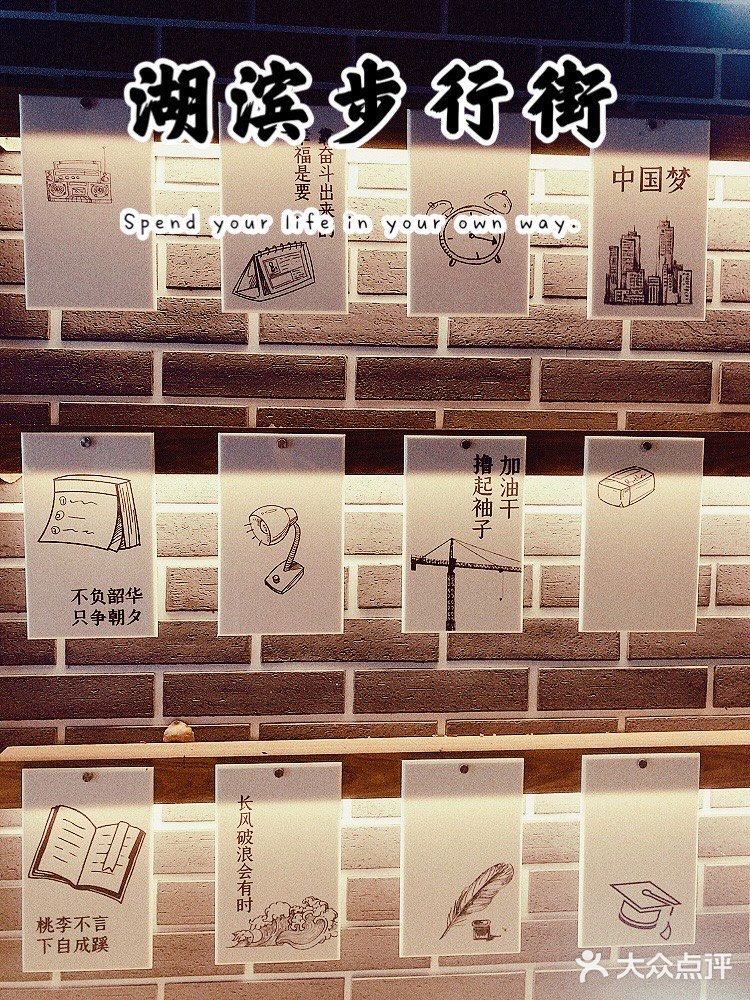 湖滨步行街
奋斗出来的
福是要
中国梦
Spend your life in your own way.
加油干
撸起袖子
不负韶华
只争朝夕
长风破浪会有时
桃李不言
下自成蹊
大众点评